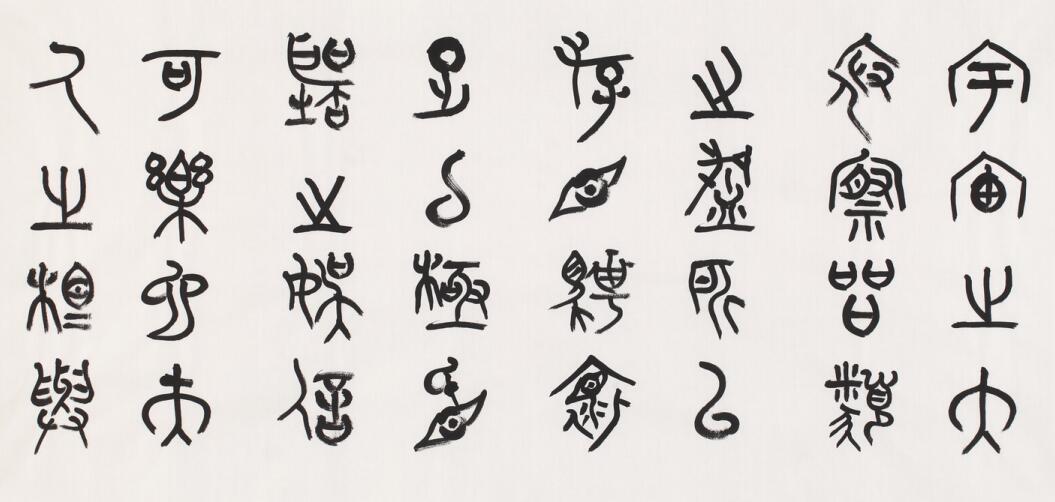 宇宙之大
俯察品類
之盛所以
游目騁懷
足以極視
聽之娛信
可樂也夫
人之相與